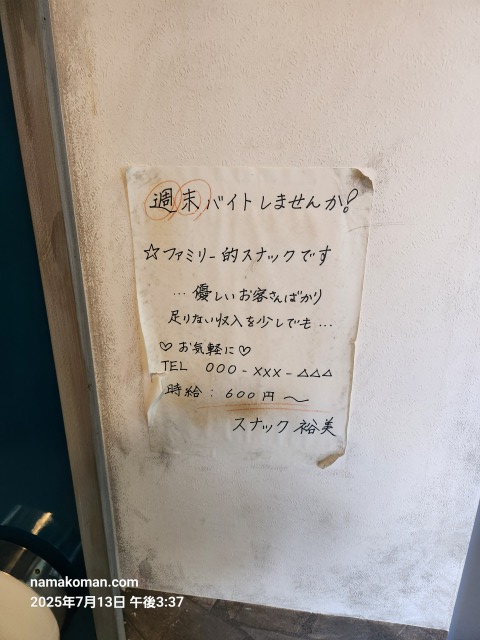 週末バイトしませんか?
☆ファミリー的スナックです
…優しいお客さんばかり
足りない収入を少しでも…
♡お気軽に♡
TEL 000-XXX-△△△
時給:600円〜
スナック 裕美
namakoman.com
2025年7月13日 午後3:37